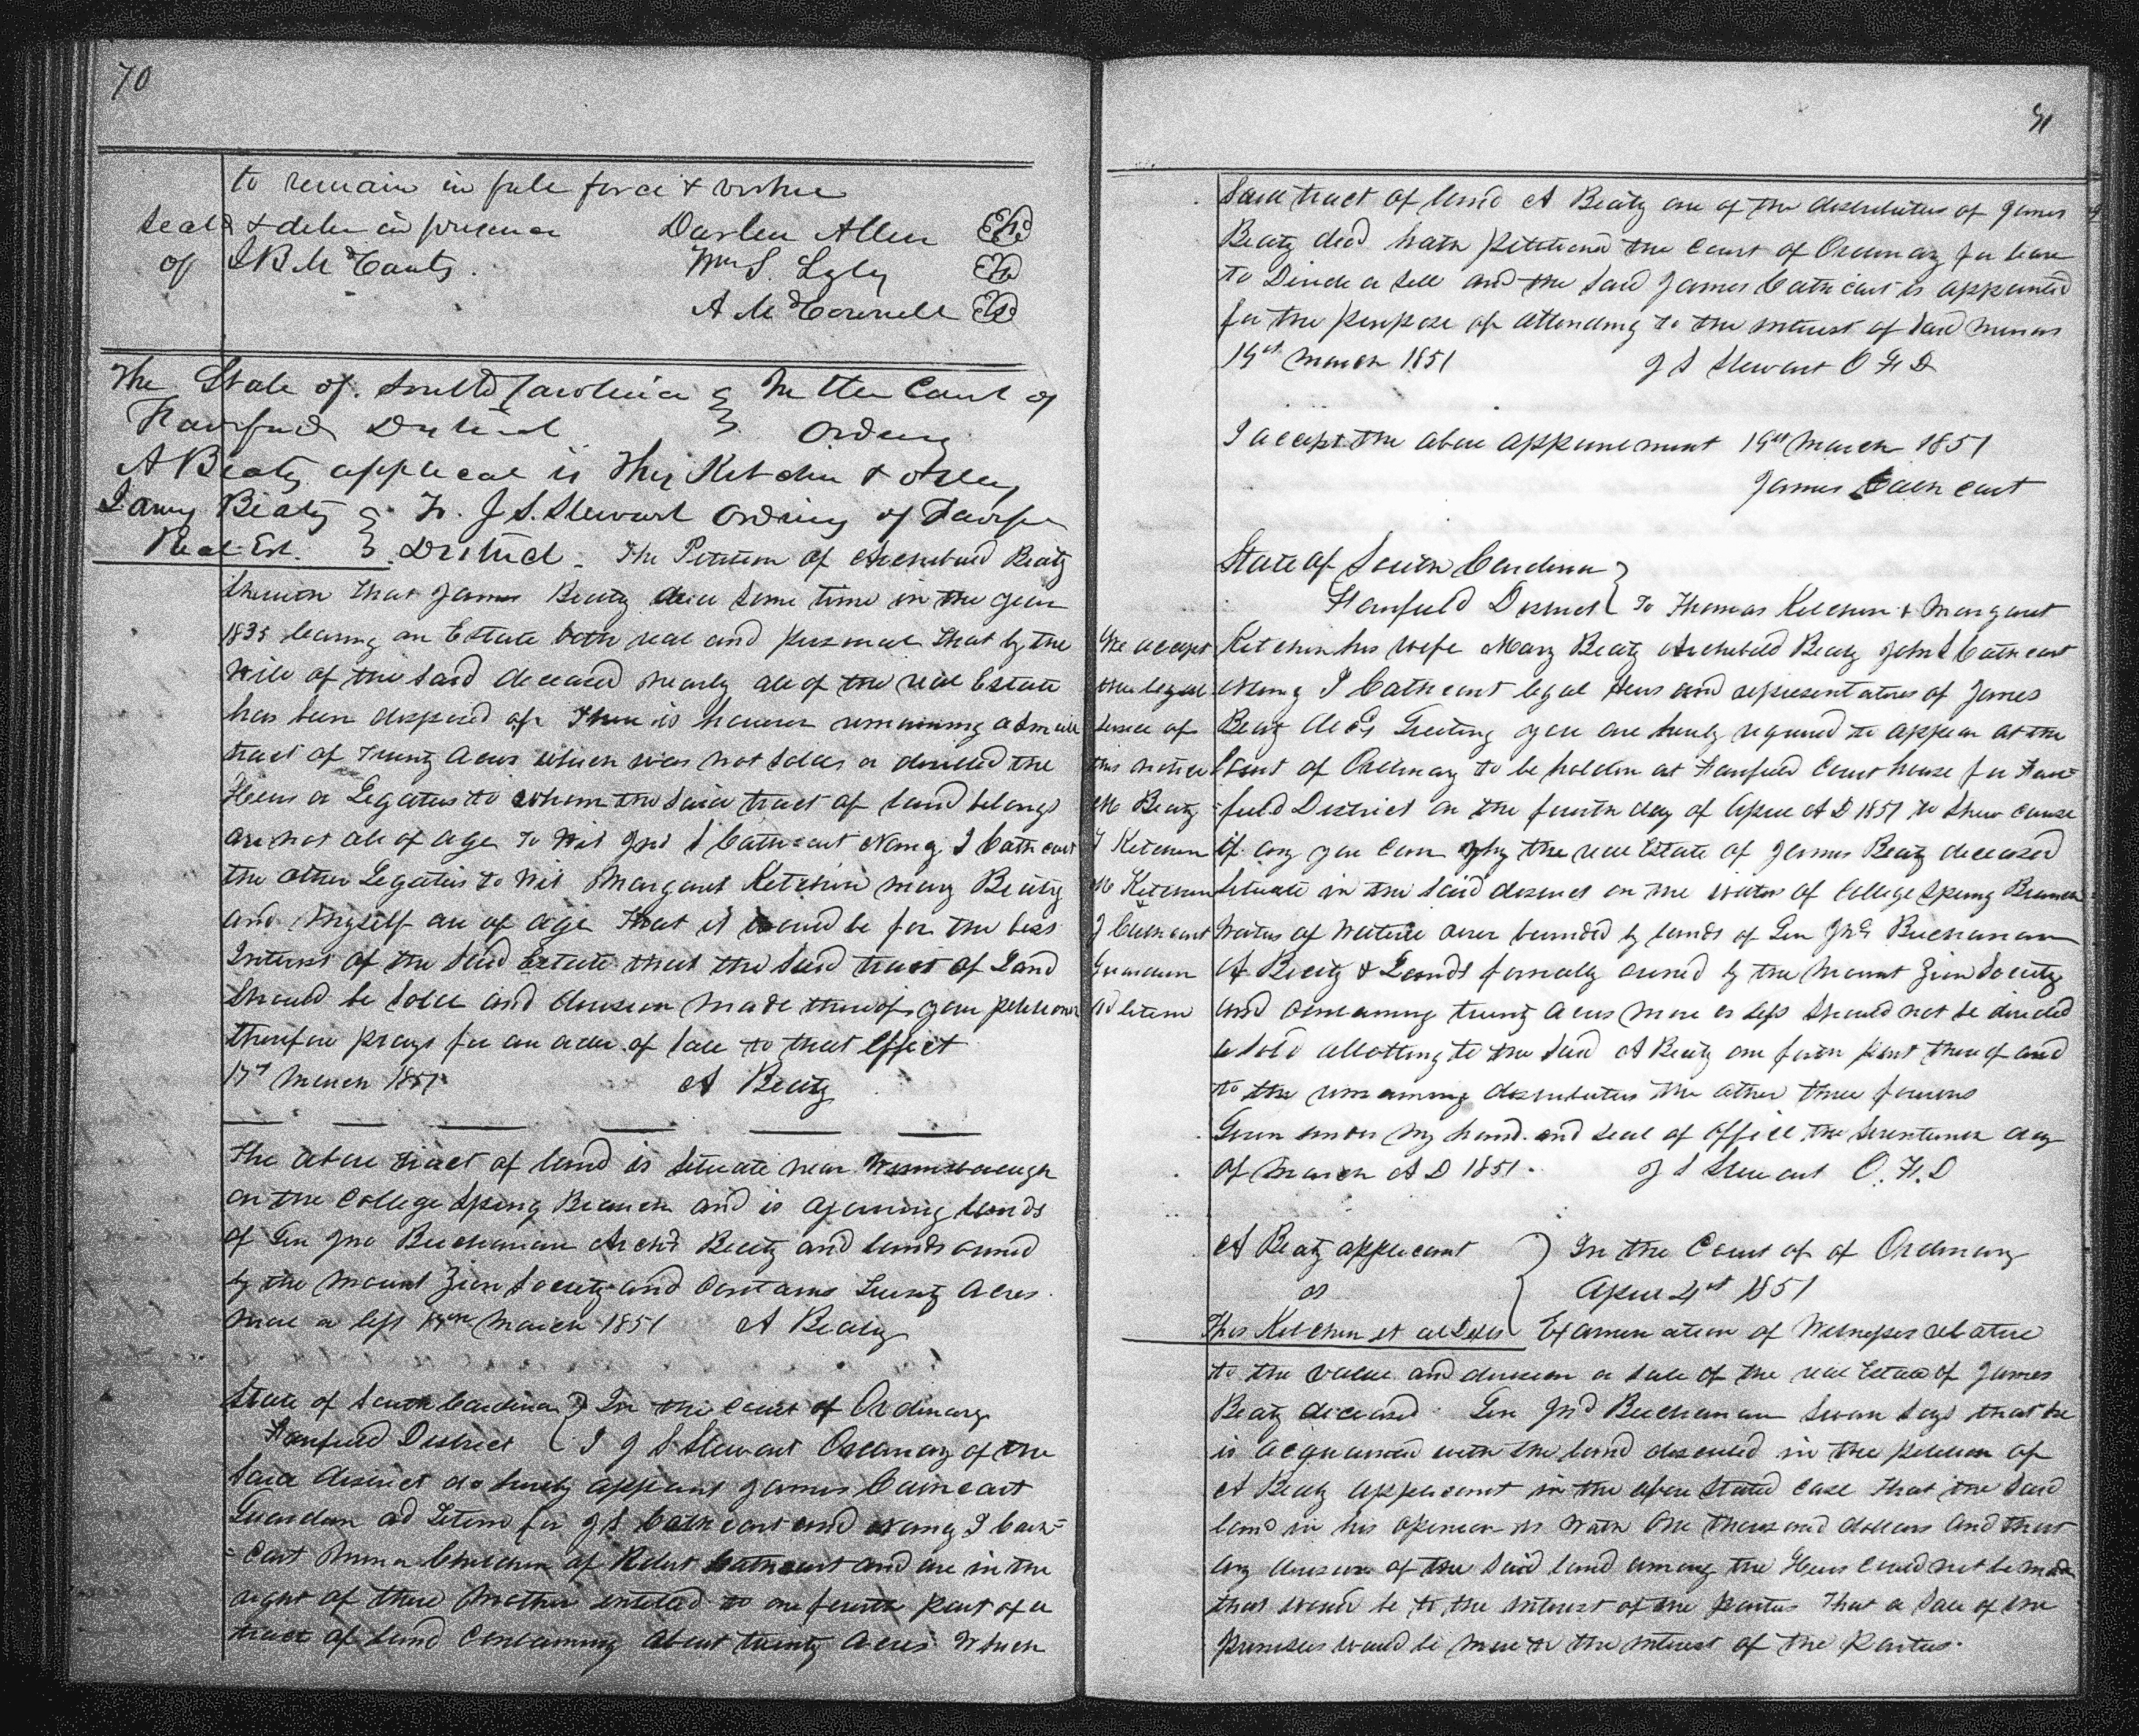 70
to remain in full force & virtue
Seald & delv in presence Darlen Allen
of J B McCants. Wm S. Lyly
A McConnell
The State of South Carolina } In the Court of
Fairfield District } Ordiny
A Beaty applicat vs Thos Ketchin & others
James Beaty } To. J. S. Stewart Ordiny of Fairfie
Real Est. } District. The Petition of Archibald Beaty
sheweth that James Beaty died some time in the year
1835 leaving an Estate both real and personal that by the
Will of the said deceased nearly all of the real Estate
has been disposed of. There is however remaining a small
tract of Twenty acres which was not sold or divided the
Heirs or Legatees to whom the said tract of land belongs
are not all of age To Wit Jno S Cathcart Nancy J Cathcart
the other Legatees to Wit Margaret Ketchin Mary Beaty
and Myself are of age That it would be for the best
Interest of the said Estate that the said tract of Land
should be sold and division made thereof your petitioner
therefore prays for an order of sale to that effect
17th March 1851 A Beaty
The above tract of land is situate near Winnsborough
on the College Spring Branch and is ajoining lands
of Gen Jno Buchanan Archd Beaty and lands owned
by the Mount Zion Society and contains Twenty Acres
more or less 17th March 1851 A Beaty
State of South Carolina } In the Court of Ordinary
Fairfield District } I J S Stewart Ordinary of the
said District do hereby appoint James Cathcart
Guardian ad Litem for J S Cathcart and Nancy J Cath-
-cart Minor Children of Robert Cathcart and are in the
right of there Mother entitled to one fourth part of a
tract of land containing about twenty acres Which
71
Said tract of land A Beaty one of the distributees of James
Beaty decd hath petitioned the Court of Ordinary for leave
to Divide or sell and the said James Cathcart is appointed
for the purpose of attending to the interest of said minors
19th March 1851 J S Stewart O F D
I accept the above appointment 19th March 1851
James Cathcart
State of South Carolina }
Fairfield District } To Thomas Ketchin & Margaret
We accept Ketchin his wife Mary Beaty Archibald Beaty John S Cathcart
the legal Nancy J Cathcart legal Heirs and representatives of James
service of Beaty decd Greeting you are hereby required to appear at the
this notice Court of Ordinary to be holden at Fairfield Court house for Fair-
M Beaty -field District on the fourth day of April A D 1851 to shew cause
T Ketchin if any you can why the real Estate of James Beaty deceased
M Ketchin situate in the said district on the waters of College Spring Branch
J Cathcart Waters of Wateree river bounded by lands of Gen Jno Buchanan
Guardian A Beaty & Lands formerly owned by the Mount Zion Society
ad litem and containing twenty acres more or less should not be divided
or sold allotting to the said A Beaty one forth part thereof and
to the remaining distributees the other three fourths
Given under my hand and seal of office the seventeenth day
of March A D 1851. J S Stewart O. F. D
A Beaty applicant } In the Court of of Ordinary
vs } April 4th 1851
Thos Ketchin et al Defts } Examination of Witnesses relative
to the value and division or sale of the real Estate of James
Beaty deceased. Gen Jno Buchanan Sworn says that he
is acquainted with the land described in the petition of
A Beaty applicant in the above stated case That the said
land in his opinion is worth One thousand dollars and that
any division of the said land among the Heirs could not be made
that would be to the interest of the parties That a sale of the
premises would be more to the interest of the Parties.